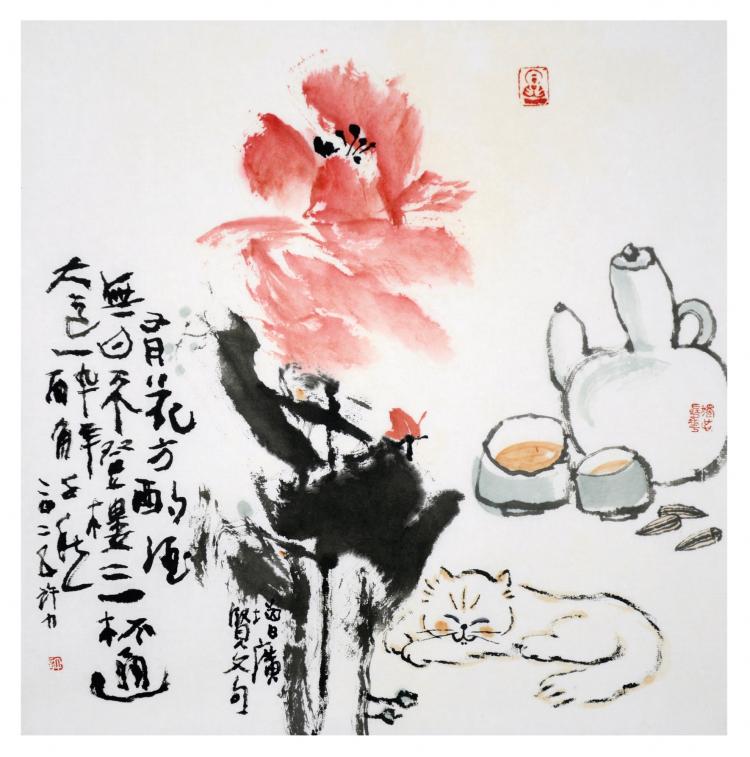 有花方酌酒
無月不登樓三杯通
大道一醉解千愁
二〇二五許力
增廣
賢文句